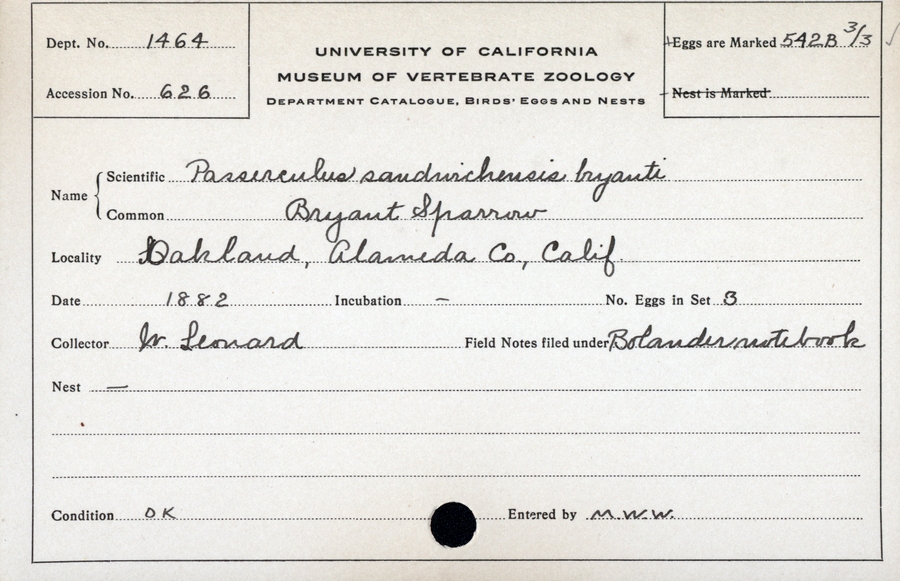 Dept. No. 1464
Accession No. 626
UNIVERSITY OF CALIFORNIA
MUSEUM OF VERTEBRATE ZOOLOGY
DEPARTMENT CATALOGUE, BIRDS' EGGS AND NESTS
Eggs are Marked 542B 3/3
Nest is Marked
Name
Scientific Passerculus sandwichensis bryanti
Common Bryant Sparrow
Locality Oakland, Alameda Co., Calif.
Date 1882 Incubation — No. Eggs in Set 3
Collector W. Leonard Field Notes filed under Bolander notebook
Nest —
Condition OK Entered by M.W.W.